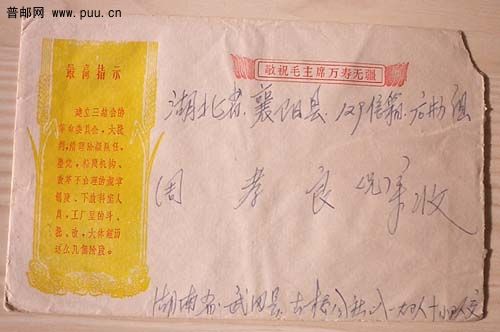 普邮网
www.puu.cn
最高指示
建立三结合的
革命委员会，大批
判，清理阶级队伍，
整党，精简机构、
改革不合理的规章
制度、下放科室人
员，工厂里的斗、
批、改，大体经历
这么几个阶段。
敬祝毛主席万寿无疆
湖北省.襄阳县.129信箱.
周孝良 收
湖南省.武冈县.